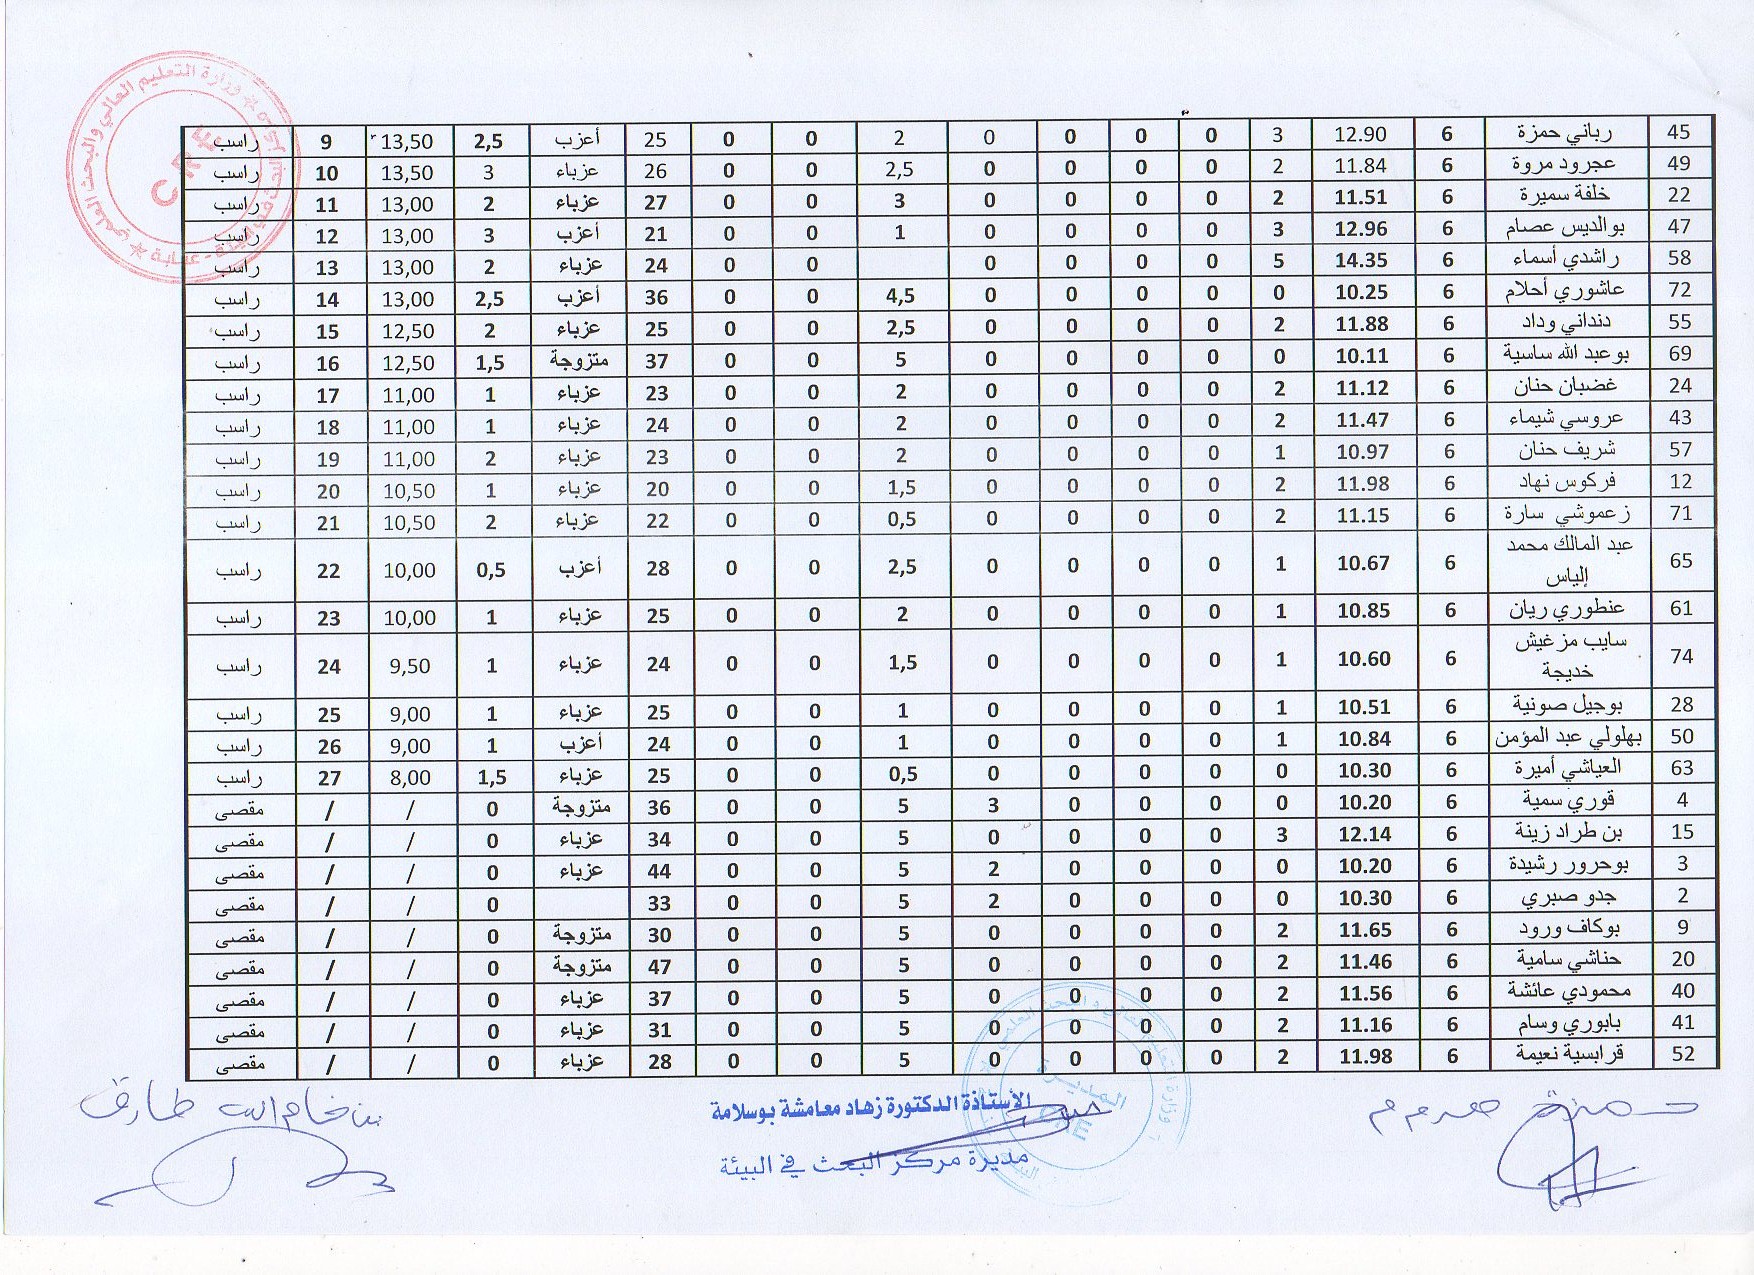 وزارة التعليم العالي والبحث العلمي
CRE
45 رباني حمزة 6 12.90 3 0 0 0 0 2 0 0 25 أعزب 2,5 13,50 9 راسب
49 عجرود مروة 6 11.84 2 0 0 0 0 2,5 0 0 26 عزباء 3 13,50 10 راسب
22 خلفة سميرة 6 11.51 2 0 0 0 0 3 0 0 27 عزباء 2 13,00 11 راسب
47 بوالديس عصام 6 12.96 3 0 0 0 0 1 0 0 21 أعزب 3 13,00 12 راسب
58 راشدي أسماء 6 14.35 5 0 0 0 0 0 0 24 عزباء 2 13,00 13 راسب
72 عاشوري أحلام 6 10.25 0 0 0 0 0 4,5 0 0 36 أعزب 2,5 13,00 14 راسب
55 دنداني وداد 6 11.88 2 0 0 0 0 2,5 0 0 25 عزباء 2 12,50 15 راسب
69 بوعبد الله ساسية 6 10.11 0 0 0 0 0 5 0 0 37 متزوجة 1,5 12,50 16 راسب
24 غضبان حنان 6 11.12 2 0 0 0 0 2 0 0 23 عزباء 1 11,00 17 راسب
43 عروسي شيماء 6 11.47 2 0 0 0 0 2 0 0 24 عزباء 1 11,00 18 راسب
57 شريف حنان 6 10.97 1 0 0 0 0 2 0 0 23 عزباء 2 11,00 19 راسب
12 فركوس نهاد 6 11.98 2 0 0 0 0 1,5 0 0 20 عزباء 1 10,50 20 راسب
71 زعموشي سارة 6 11.15 2 0 0 0 0 0,5 0 0 22 عزباء 2 10,50 21 راسب
65 عبد المالك محمد إلياس 6 10.67 1 0 0 0 0 2,5 0 0 28 أعزب 0,5 10,00 22 راسب
61 عنطوري ريان 6 10.85 1 0 0 0 0 2 0 0 25 عزباء 1 10,00 23 راسب
74 سايب مزغيش خديجة 6 10.60 1 0 0 0 0 1,5 0 0 24 عزباء 1 9,50 24 راسب
28 بوجيل صونية 6 10.51 1 0 0 0 0 1 0 0 25 عزباء 1 9,00 25 راسب
50 بهلولي عبد المؤمن 6 10.84 1 0 0 0 0 1 0 0 24 أعزب 1 9,00 26 راسب
63 العياشي أميرة 6 10.30 0 0 0 0 0 0,5 0 0 25 عزباء 1,5 8,00 27 راسب
4 قوري سمية 6 10.20 0 0 0 0 3 5 0 0 36 متزوجة 0 / / مقصى
15 بن طراد زينة 6 12.14 3 0 0 0 0 5 0 0 34 عزباء 0 / / مقصى
3 بوحرور رشيدة 6 10.20 0 0 0 0 2 5 0 0 44 عزباء 0 / / مقصى
2 جدو صبري 6 10.30 0 0 0 0 2 5 0 0 33 0 / / مقصى
9 بوكاف ورود 6 11.65 2 0 0 0 0 5 0 0 30 متزوجة 0 / / مقصى
20 حناشي سامية 6 11.46 2 0 0 0 0 5 0 0 47 متزوجة 0 / / مقصى
40 محمودي عائشة 6 11.56 2 0 0 0 0 5 0 0 37 عزباء 0 / / مقصى
41 بابوري وسام 6 11.16 2 0 0 0 0 5 0 0 31 عزباء 0 / / مقصى
52 قرابسية نعيمة 6 11.98 2 0 0 0 0 5 0 0 28 عزباء 0 / / مقصى
المديرة
CRE
الأستاذة الدكتورة زهاد معامشة بوسلامة
مديرة مركز البحث في البيئة
طارق